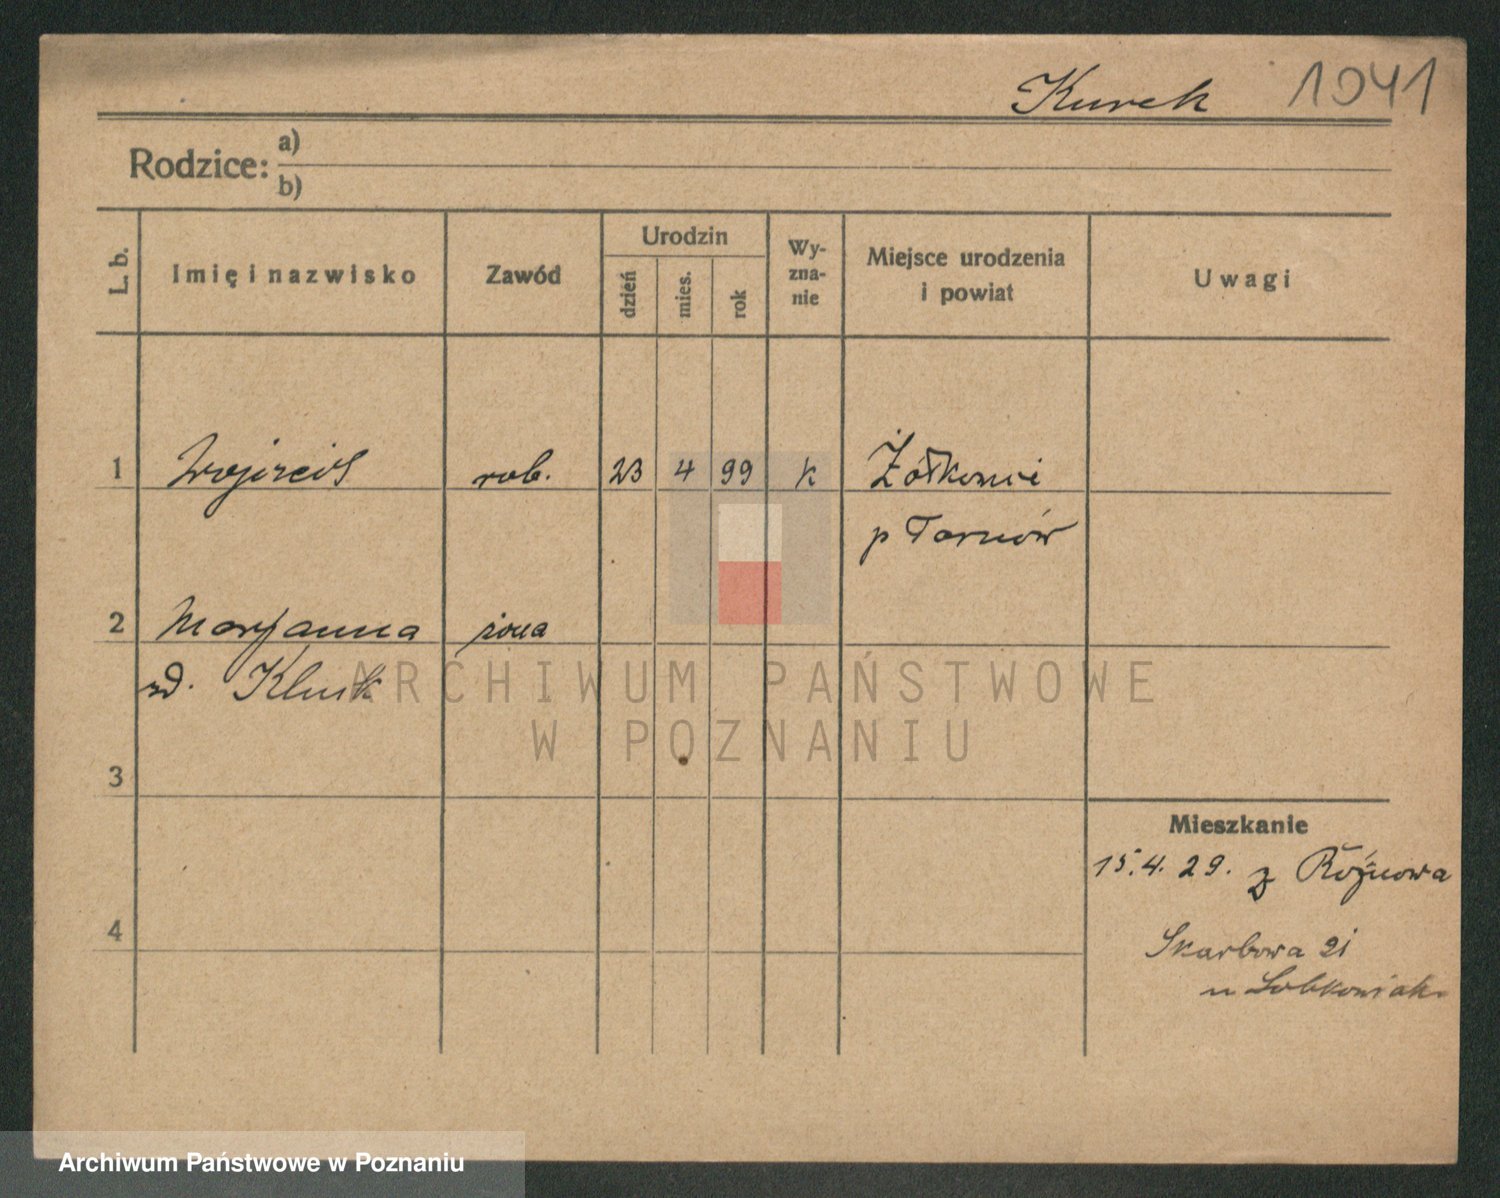 Kurek 1041
Rodzice: a)
b)
L. b.
Imię i nazwisko
Zawód
Urodzin
dzień
mies.
rok
Wy-
zna-
nie
Miejsce urodzenia
i powiat
Uwagi
1 Wojciech rob. 23 4 99 k
p Tarnów
2 Maryanna żona
3
4
Mieszkanie
15.4.29. z Różnowa
Skarbowa 21
u
ARCHIWUM PAŃSTWOWE
W POZNANIU
Archiwum Państwowe w Poznaniu